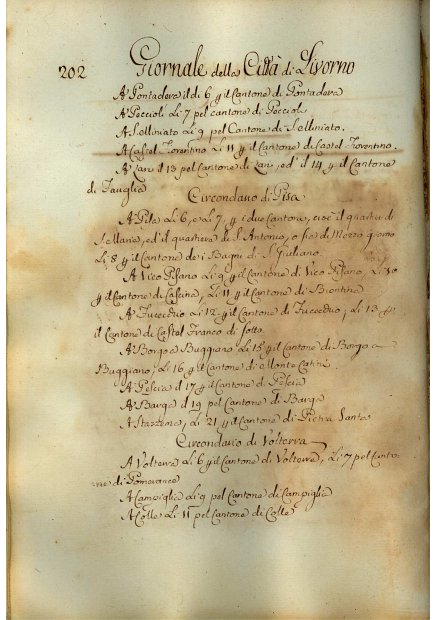 202 Giornale della Città di Livorno
A' Pontadera il di 6 p il Cantone di Pontadera
A' Peccioli li 7 pel cantone di Peccioli
A S. Miniato li 9 pel Cantone di S. Miniato.
A Castel Fiorentino li 11 p il Cantone di Castel Fiorentino.
A' Lari il 13 pel Cantone di Lari, ed' il 14 p il Cantone
di Fauglia
Circondario di Pisa
A' Pisa li 6, e li 7, p i due Cantoni, cioè il quartier di
S. Maria, ed' il quartiere di S. Antonio, o sia di Mezzo giorno
li 8 p il Cantone de i Bagni di S. Giuliano.
A Vico Pisano li 9 p il Cantone di Vico Pisano, li 10
p il Cantone di Cascina, li 11 p il Cantone di Bientina
A' Fucecchio li 12 p il Cantone di Fucecchio, li 13 p
il Cantone di Castel Franco di Sotto.
A' Borgo a Buggiano li 15 p il Cantone di Borgo a
Buggiano, li 16 p il Cantone di Monte Catini
A Pescia il 17 p il Cantone di Pescia
A' Barga il 19 pel Cantone di Barga
A Stazzema, li 21 p il Cantone di Pietra Santa
Circondario di Volterra
A Volterra li 6 p il Cantone di Volterra, li 7 pel Canto
ne di Pomarance
A Campiglia li 9 pel Cantone di Campiglia
A Colle li 11 pel Cantone di Colle